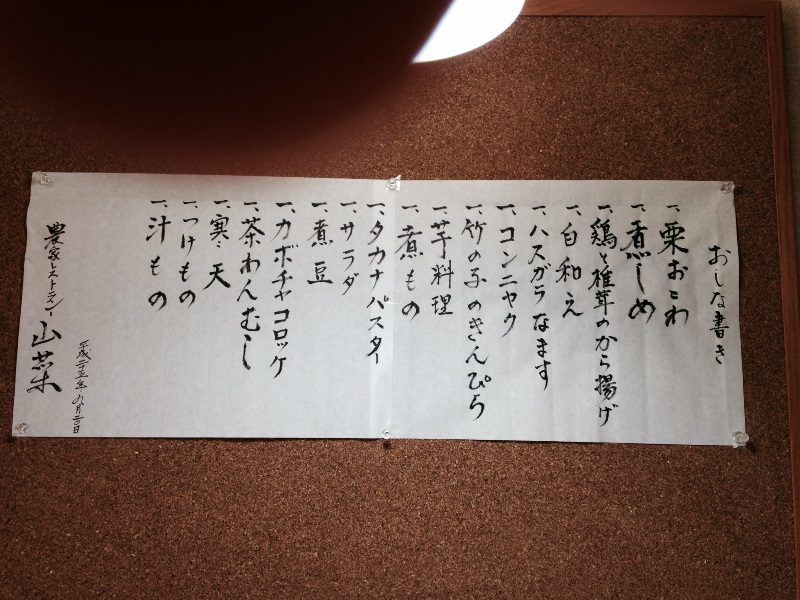 おしな書き
一、栗おこわ
一、煮しめ
一、鶏と椎茸のから揚げ
一、白和え
一、ハスガラなます
一、コンニャク
一、竹の子のきんぴら
一、芋料理
一、煮もの
一、タカナパスター
一、サラダ
一、煮豆
一、カボチャコロッケ
一、茶わんむし
一、寒天
一、つけもの
一、汁もの
平成二十五年 九月二十日
農家レストラン 山